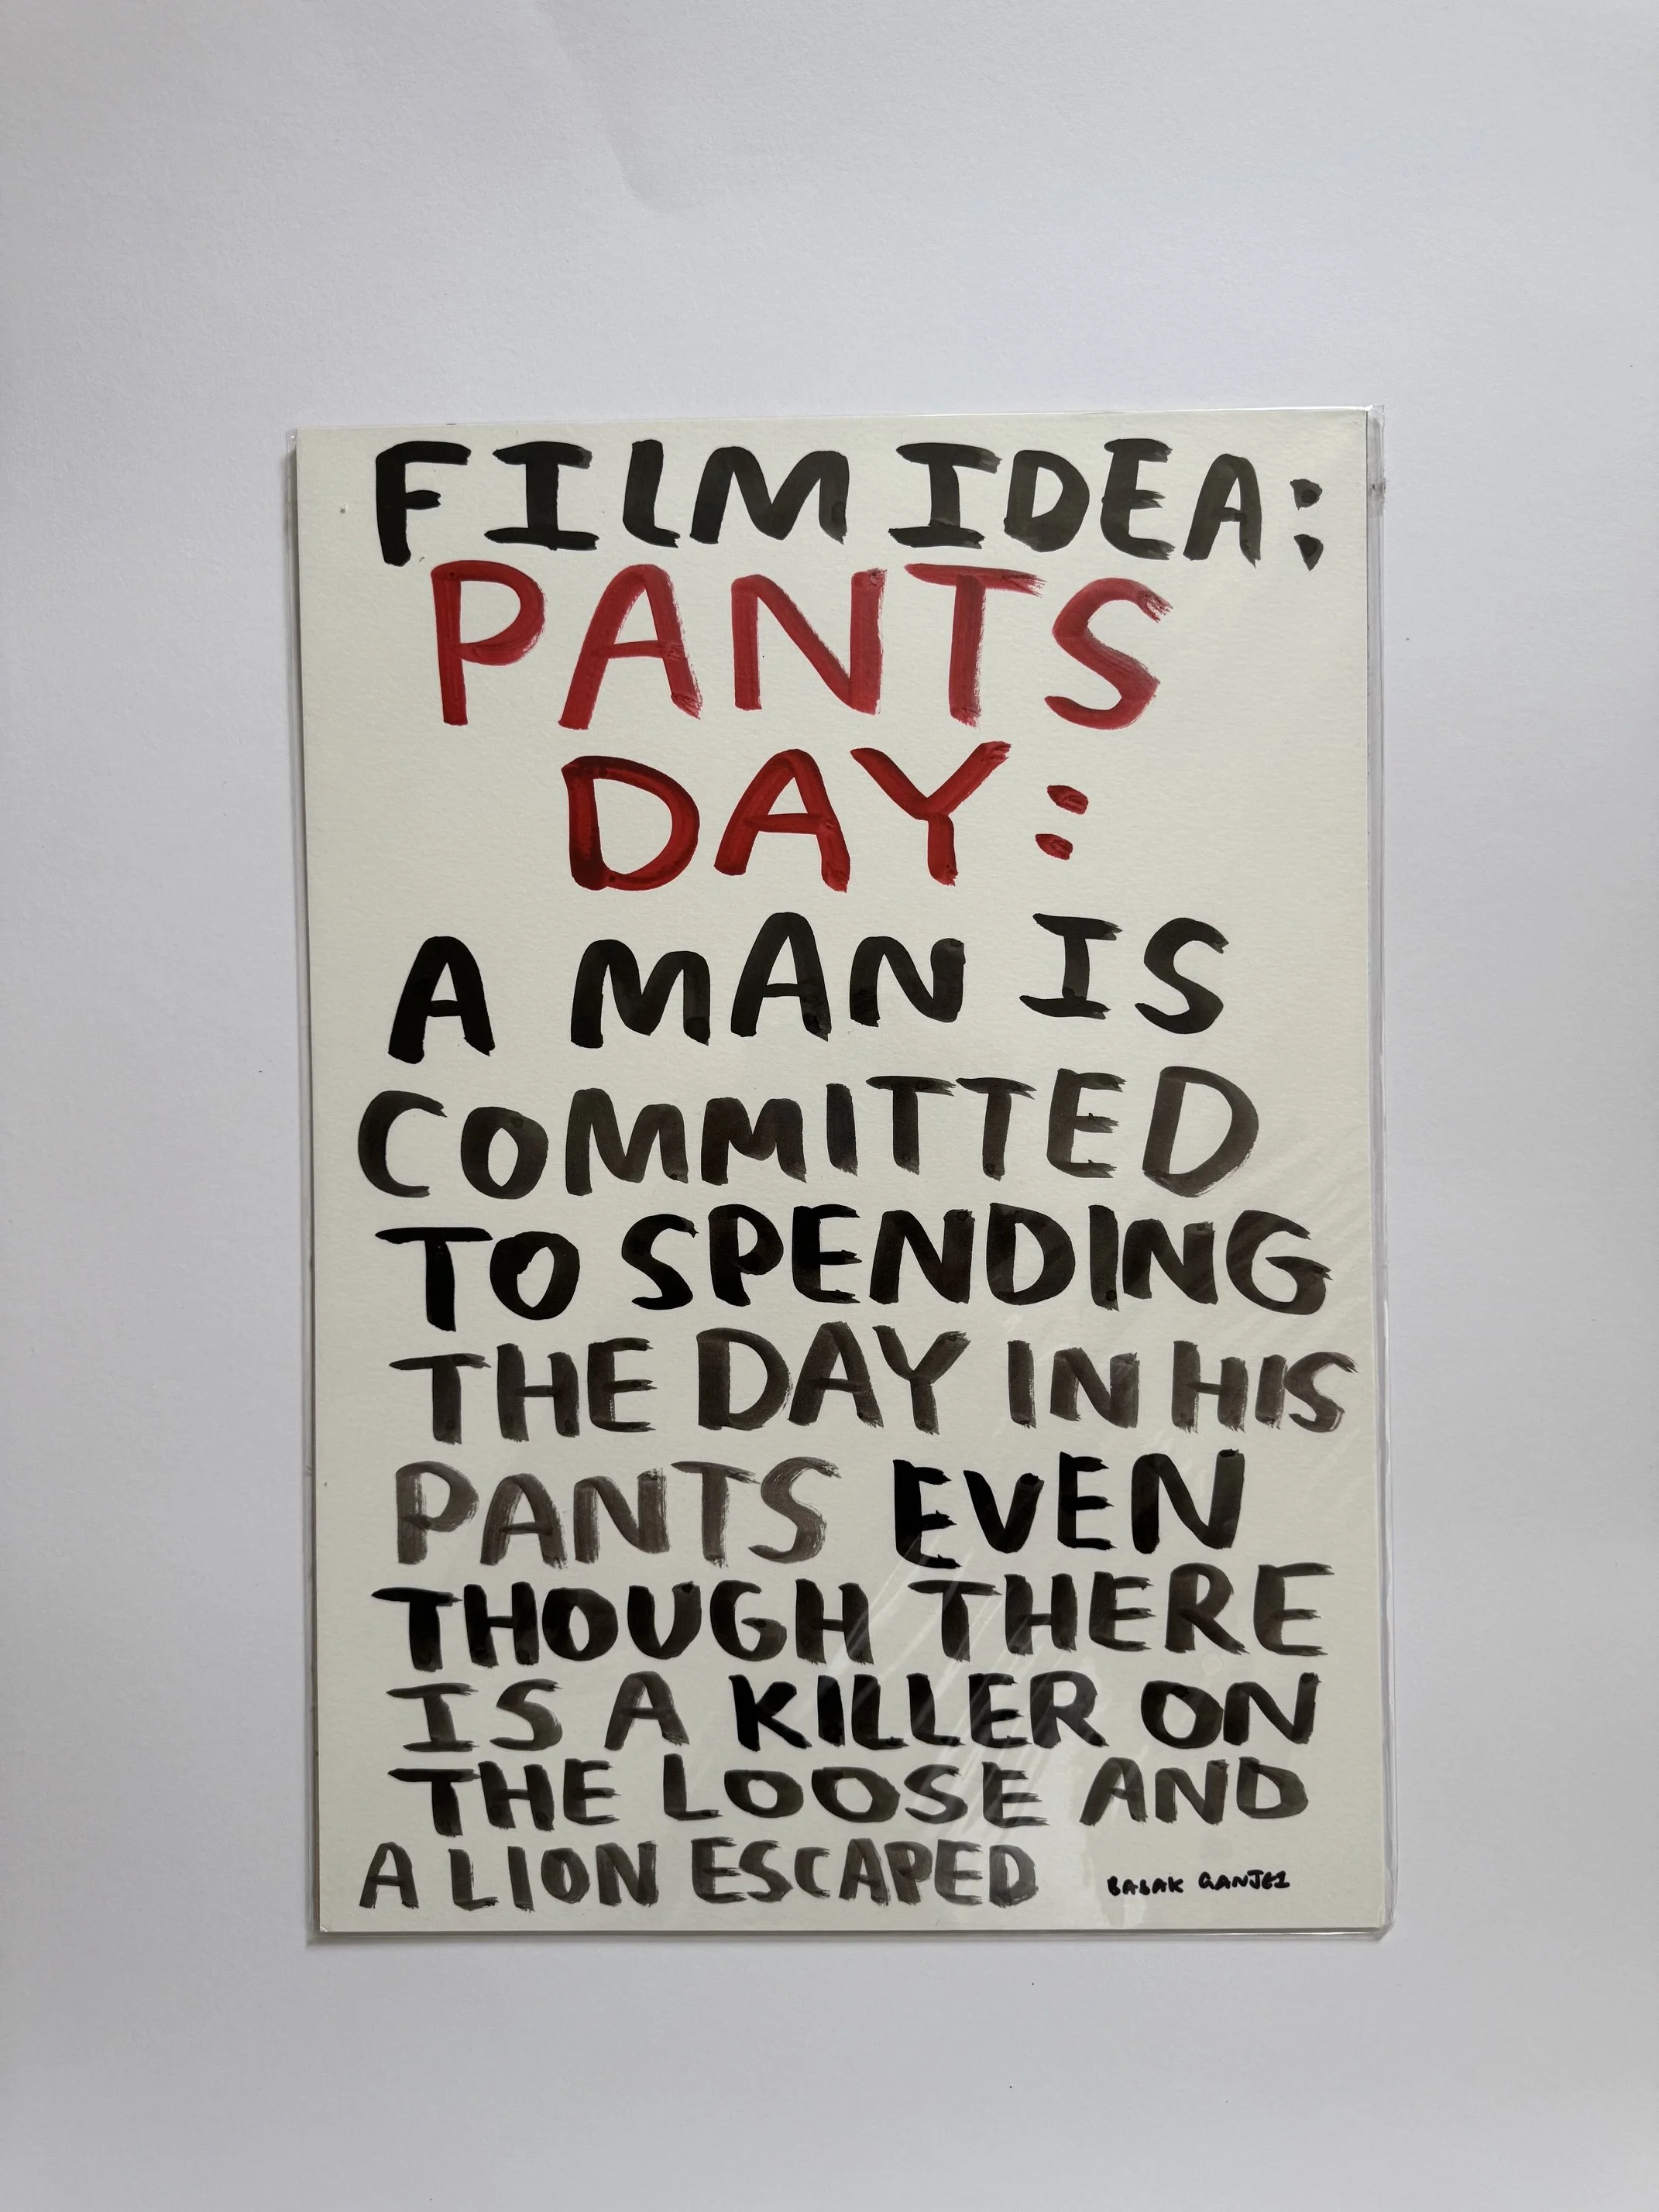 FILM IDEA:
PANTS
DAY:
A MAN IS
COMMITTED
TO SPENDING
THE DAY IN HIS
PANTS EVEN
THOUGH THERE
IS A KILLER ON
THE LOOSE AND
A LION ESCAPED
BABAK GANJEI